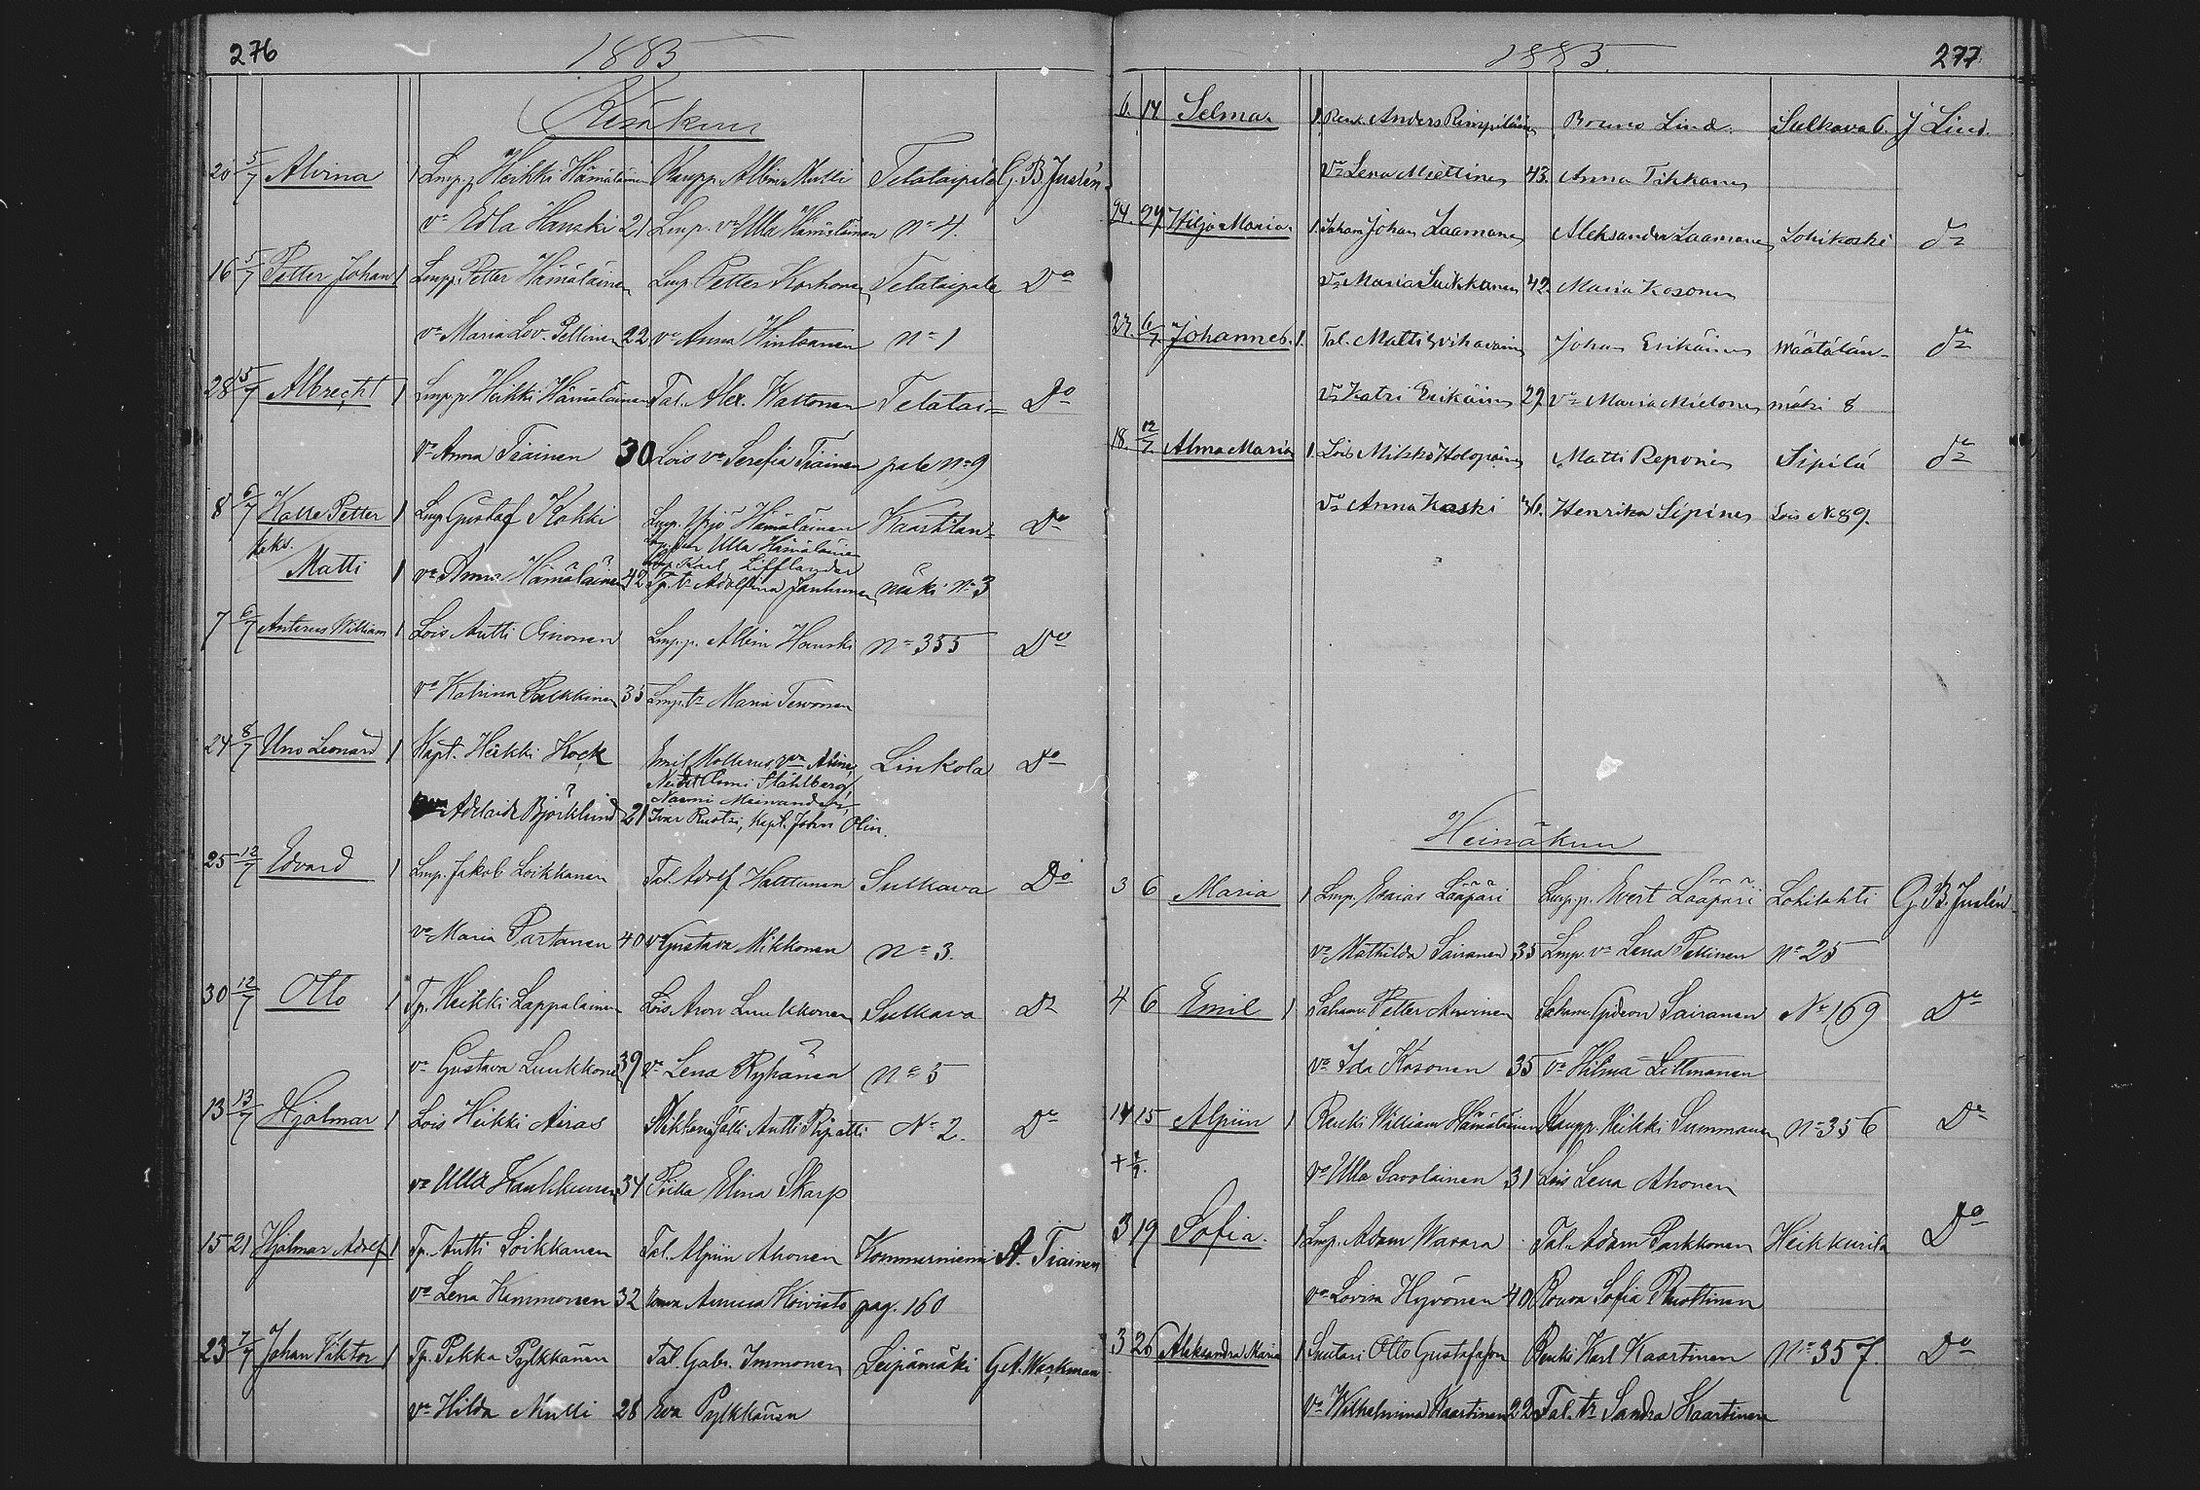 276
1885
Kesäkuu
20 5/7 Alvina 1 Lmp.p Heikki Hämäläinen Kaupp. Albin Multi Telataipale G. B. Juslén
va Edla Hanski 21 Lmp. va Ulla Hämäläinen No 4.
16 5/7 Petter Johan 1 Lmpp. Petter Hämäläinen Lmp Petter Korhonen Telataipale Do
va Maria Lov. Pellinen 22 va Anna Hintsanen No 1
28 5/7 Albrecht 1 Lmp.p Heikki Hämäläinen Tal. Alex. Wattonen Telatai= Do
va Anna Tiainen 30 Lois va Serefia Tiainen pale No 9
8 6/7 Kalle Petter 1 Lmp Gustaf Kokki Lmp. Yrjö Hämäläinen Kaartilan= Do
kaks. Ulla Hämäläinen
Karl Lifflander
Matti 1 va Anna Hämäläinen 42 Tp. tr Adolfina Jantunen mäki No 3
7 6/7 Anterus William 1 Lois Antti Oinonen Lmp.p. Albin Hanski No 355 Do
va Katrina Pulkkinen 35 Lmp. tr Maria Tervonen
24 8/7 Uno Leonard 1 Kapt. Heikki Kock Emil Mollerus Alina, Linkola Do
Stählberg,
Naemi
Adelaide Björklund 21 Ivar Ruotzi, Kapt. John Olin.
25 12/7 Edvard 1 Lmp. Jakob Loikkanen Tal. Adolf Halttunen Sulkava Do
va Maria Partanen 40 va Gustava Mikkonen No 3.
30 12/7 Otto 1 Tp. Heikki Lappalainen Lois Aron Luukkonen Sulkava Do
va Gustava Luukkonen 39 va Lena Ryhänen No 5
13 13/7 Hjalmar 1 Lois Heikki Airas Antti Ripatti No 2. Do
va Ulla Kaukkunen 34 Piika Elina Skarp
15 21 Hjalmar Adolf 1 Tp. Antti Loikkanen Tal. Alpiin Ahonen Kommerniemi A. Tiainen
va Lena Kammonen 32 Koivisto pag. 160
23 7/7 Johan Viktor 1 Tp. Pekka Pylkkänen Tal. Gabr. Immonen Leipämäki G. A. Warkman
va Hilda Multi 28 Eva Pylkkänen
1885.
277
6. 14 Selma 1. Renk. Anders Rimpiläinen Bruno Lind. Sulkava 6. J Lind.
va Lena Miettinen 43. Anna Tikkanen
24. 29 Hilja Maria 1. Johan Laamanen Aleksander Laamanen Lohikoski do
va Maria Suikkanen 42. Maria Kosonen
27. 6/7 Johannes. 1. Tal. Matti Johan Eerikäinen Määtälän- do
va Katri Eerikäinen 29 va Maria Mielonen mäki 8
18. 12/7 Alma Maria 1. Lois Mikko Holopainen Matti Reponen Sipilä do
va Anna Kaski 36. Henrika Sipinen Lois No 89.
Heinäkuu
3 6 Maria 1 Lmp. Esaias Lääpäri Lmp.p. Evert Lääpäri Lohilahti G. B. Juslén
va Mathilda Sairanen 35 Lmp. va Lena Pellinen No 25
4 6 Emil 1 Petter Auvinen Gideon Sairanen No 169 Do
va Ida Kosonen 35 va Hilma Littmanen
14 15 Alpiin 1 Renki William Hämäläinen Kaupp. Heikki Summanen No 356 Do
va Ulla Savolainen 31 Lois Lena Ahonen
3 19 Sofia. 1 Lmp. Adam Wavara Tal. Adam Parkkonen Heikkurila Do
va Lovisa Hyvönen 40 Rouva Sofia Ruottinen
3 26 Aleksandra Maria 1 Suutari Otto Gustafsson Renki Karl Kaartinen No 357. Do
va Wilhelmina Kaartinen 22 Tal. tr Sandra Kaartinen